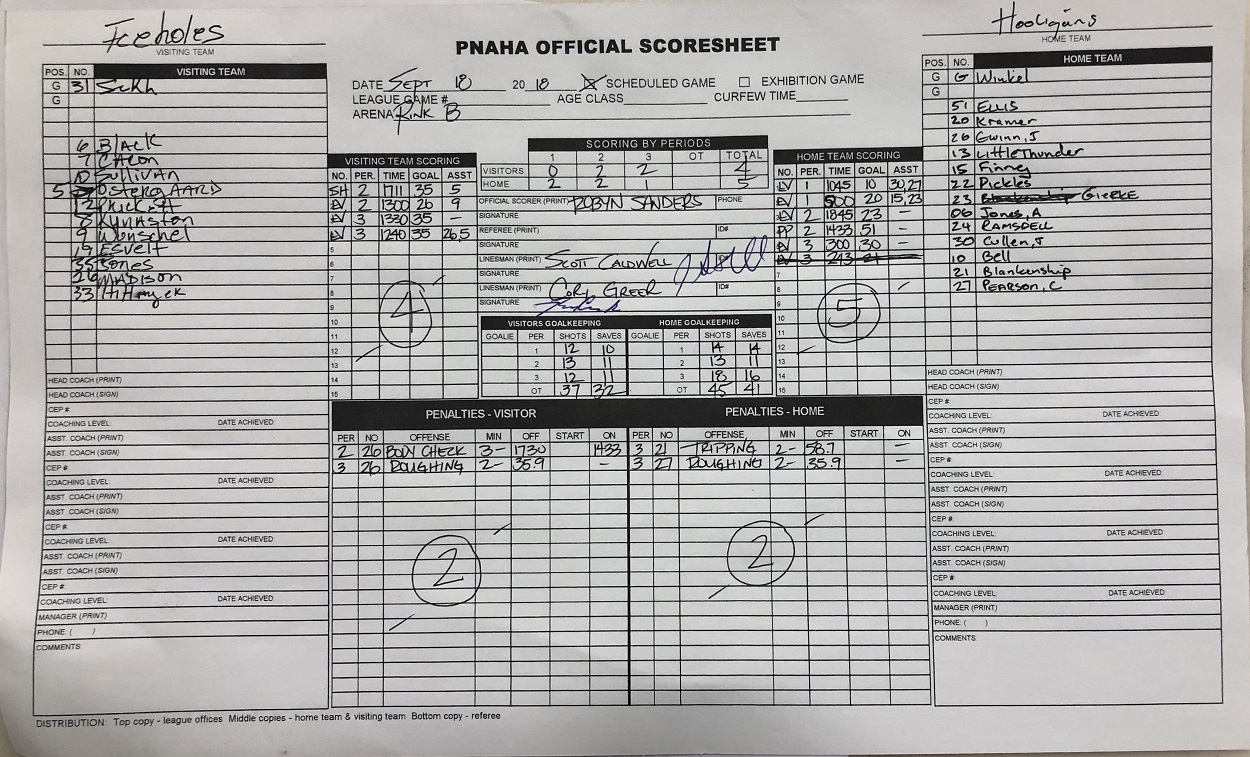 Iceholes
VISITING TEAM
Hooligans
HOME TEAM
PNAHA OFFICIAL SCORESHEET
DATE Sept 18 2018 SCHEDULED GAME EXHIBITION GAME
LEAGUE GAME # AGE CLASS CURFEW TIME
ARENA Rink B
POS. NO. VISITING TEAM
G 31
G
6 BLACK
7
10 Sullivan
5 OstergAARD
12
8 Kynaston
9
19 Esvelt
35 Jones
26 MADISON
33
HEAD COACH (PRINT)
HEAD COACH (SIGN)
CEP #
COACHING LEVEL: DATE ACHIEVED:
ASST. COACH (PRINT)
ASST. COACH (SIGN)
CEP #
COACHING LEVEL: DATE ACHIEVED:
ASST. COACH (PRINT)
ASST. COACH (SIGN)
CEP #
COACHING LEVEL: DATE ACHIEVED:
ASST. COACH (PRINT)
ASST. COACH (SIGN)
CEP #
COACHING LEVEL: DATE ACHIEVED:
MANAGER (PRINT)
PHONE: ( )
COMMENTS
VISITING TEAM SCORING
NO. PER. TIME GOAL ASST
SH 2 1711 35 5
EV 2 1300 26 9
EV 3 1330 35 -
EV 3 1240 35 26,5
5
6
7
8
9
10
11
12
13
14
15
4
SCORING BY PERIODS
1 2 3 OT TOTAL
VISITORS 0 2 2 4
HOME 2 2 1 5
OFFICIAL SCORER (PRINT) ROBYN SANDERS PHONE
SIGNATURE
REFEREE (PRINT) ID#
SIGNATURE
LINESMAN (PRINT) SCOTT CALDWELL ID#
SIGNATURE
LINESMAN (PRINT) CORY GREER ID#
SIGNATURE
VISITORS GOALKEEPING HOME GOALKEEPING
GOALIE PER SHOTS SAVES GOALIE PER SHOTS SAVES
1 12 10 1 14 14
2 13 11 2 13 11
3 12 11 3 18 16
OT 37 32 OT 45 41
HOME TEAM SCORING
NO. PER. TIME GOAL ASST
EV 1 1045 10 30,27
EV 1 500 20 15,23
EV 2 1845 23 -
PP 2 1433 51 -
EV 3 300 30 -
EV 3 243 21
7
8
9
10
11
12
13
14
15
5
POS. NO. HOME TEAM
G G Winkel
G
51 ELLIS
20 Kramer
26 Gwinn, J
13 LittleThunder
15 Finney
22 Pickles
23 Blankenship GIERKE
06 Jones, A
24 RAMSDELL
30 Cullen, J
10 Bell
21 Blankenship
27 PEARSON, C
HEAD COACH (PRINT)
HEAD COACH (SIGN)
CEP #
COACHING LEVEL: DATE ACHIEVED:
ASST. COACH (PRINT)
ASST. COACH (SIGN)
CEP #
COACHING LEVEL: DATE ACHIEVED:
ASST. COACH (PRINT)
ASST. COACH (SIGN)
CEP #
COACHING LEVEL: DATE ACHIEVED:
ASST. COACH (PRINT)
ASST. COACH (SIGN)
CEP #
COACHING LEVEL: DATE ACHIEVED:
MANAGER (PRINT)
PHONE: ( )
COMMENTS:
PENALTIES - VISITOR PENALTIES - HOME
PER NO OFFENSE MIN OFF START ON PER NO. OFFENSE MIN OFF START ON
2 26 BODY CHECK 3- 1730 1433 3 21 TRIPPING 2- 58.7 -
3 26 ROUGHING 2- 35.9 - 3 27 ROUGHING 2- 35.9 -
2 2
DISTRIBUTION: Top copy - league offices Middle copies - home team & visiting team Bottom copy - referee